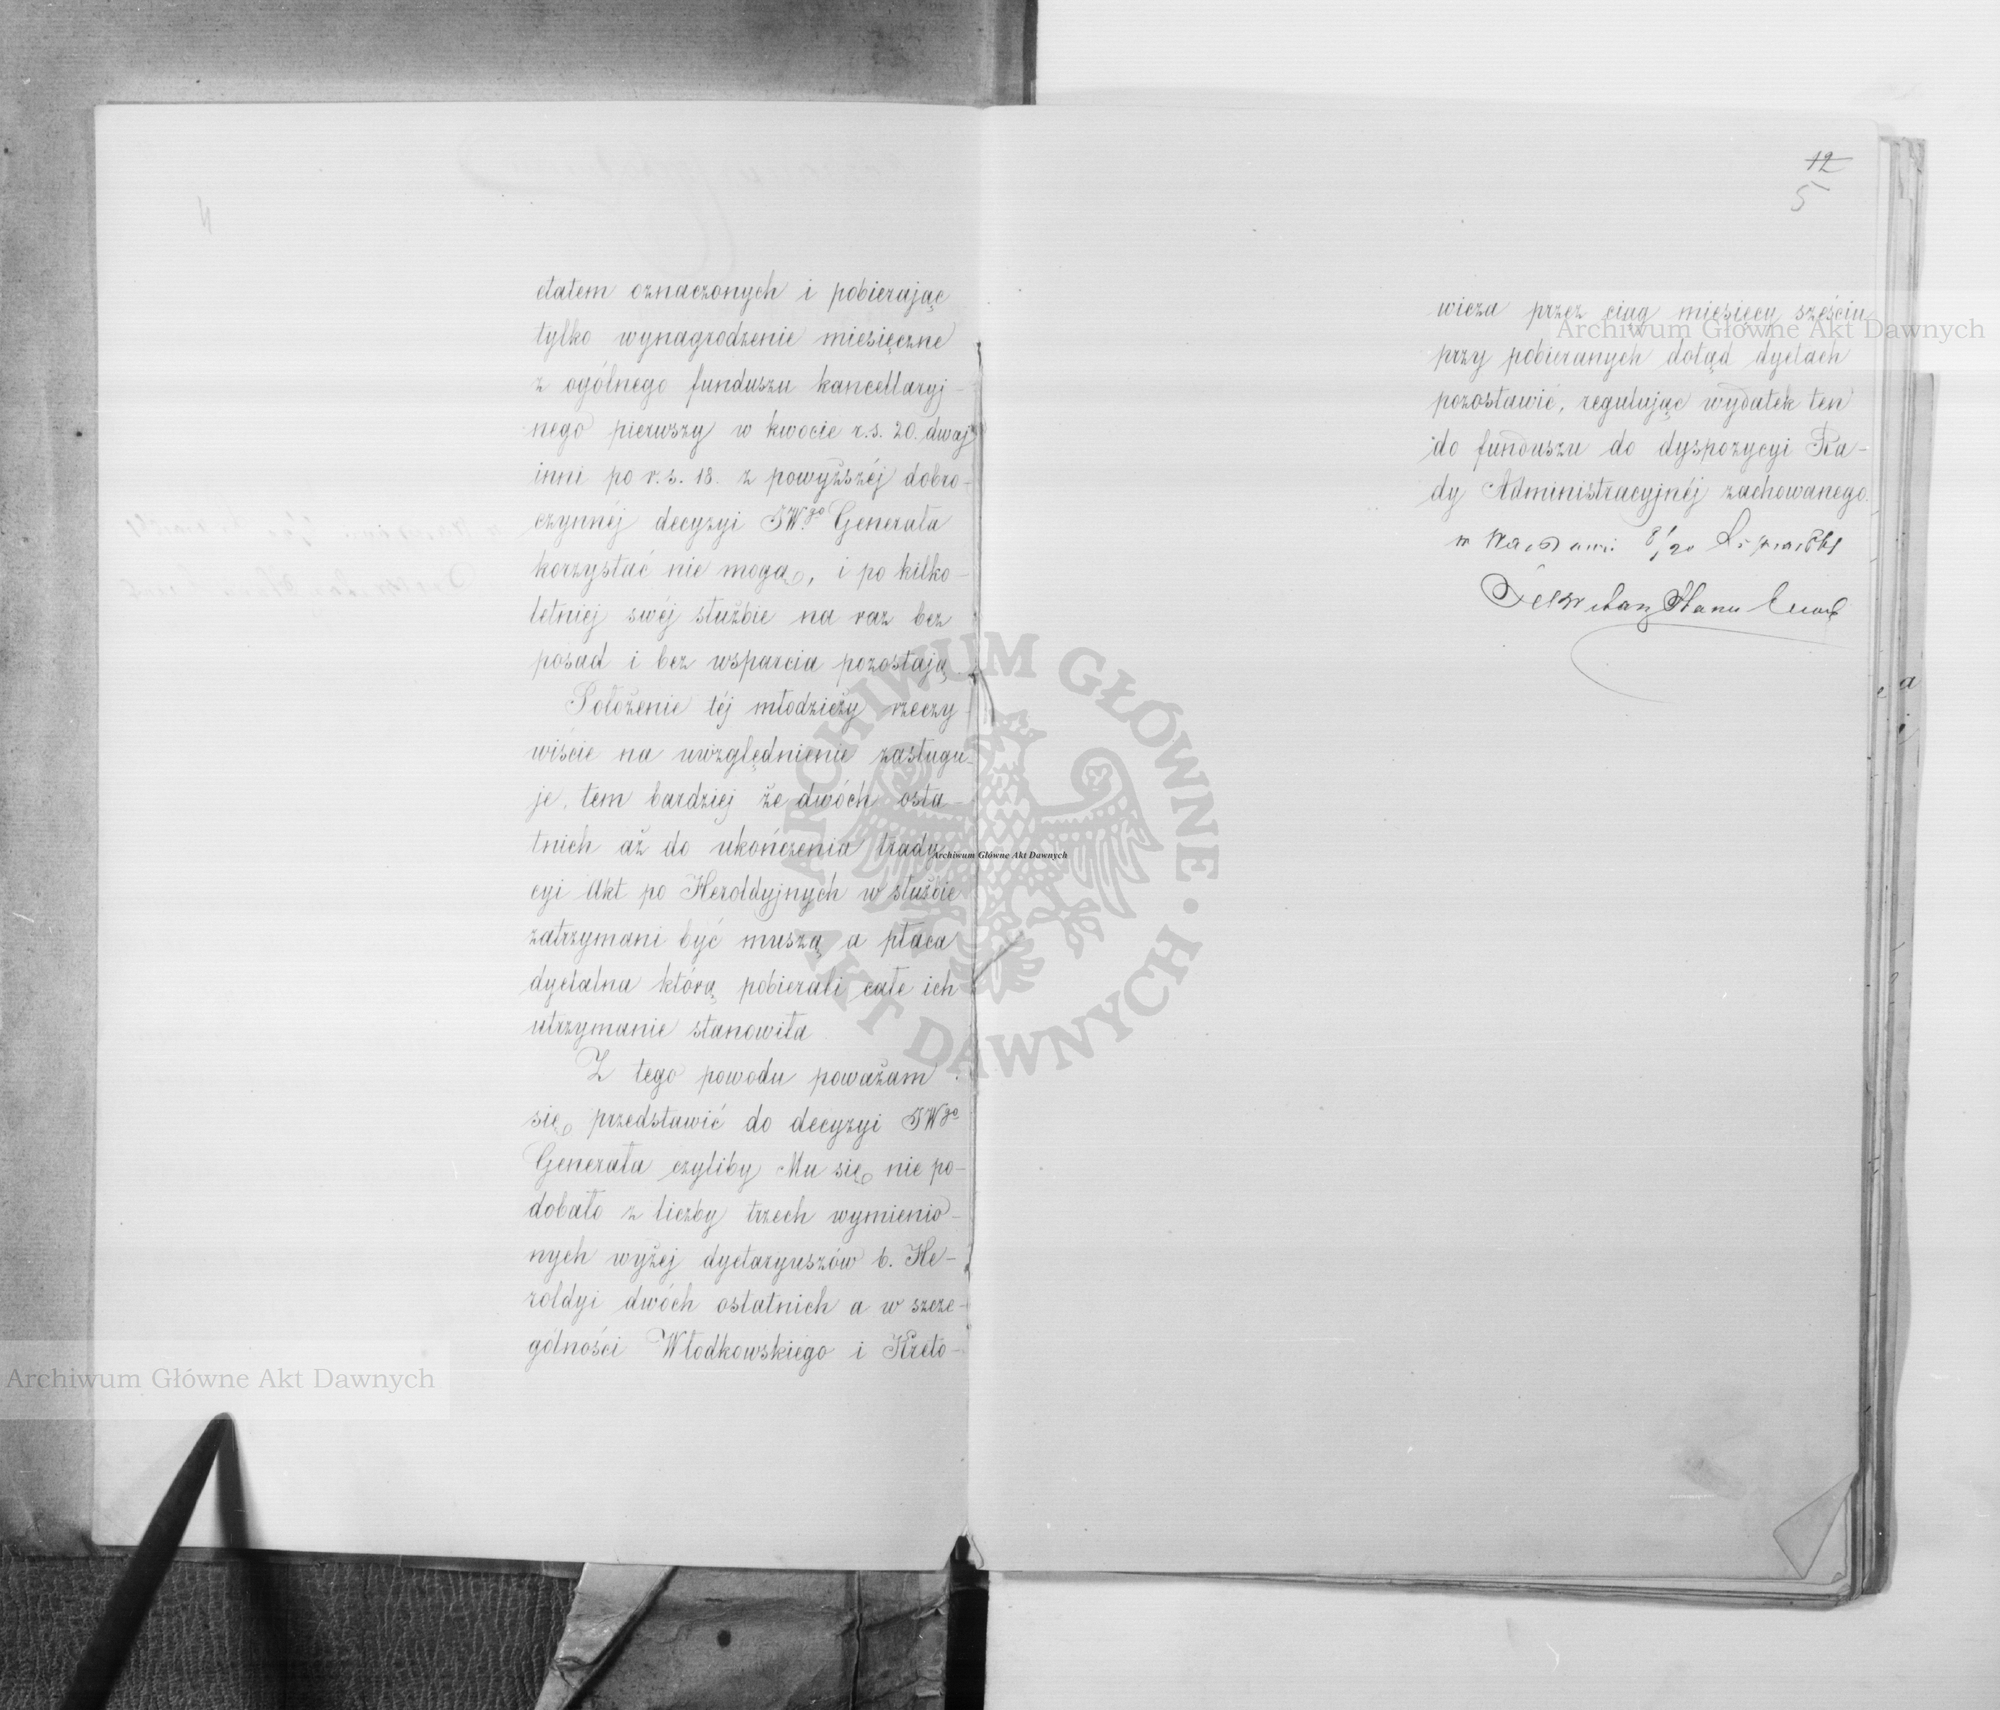 etatem oznaczonych i pobierając
tylko wynagrodzenie miesięczne
z ogólnego funduszu kancellaryj-
nego pierwszy w kwocie r.s. 20. dwaj
inni po r.s. 18. z powyższéj dobro-
czynnéj decyzyi JW.go Generała
korzystać nie mogą, i po kilko-
letniej swéj służbie na raz bez
posad i bez wsparcia pozostają.
Położenie téj młodzieży rzeczy-
wiście na uwzględnienie zasługu-
je, tem bardziej że dwóch osta-
tnich aż do ukończenia trady-
cyi Akt po Heroldyjnych w służbie
zatrzymani być muszą a płaca
dyetalna którą pobierali całe ich
utrzymanie stanowiła
Z tego powodu poważam
się przedstawić do decyzyi JWgo
Generała czyliby Mu się nie po-
dobało z liczby trzech wymienio-
nych wyżej dyetaryuszów b. He-
roldyi dwóch ostatnich a w szcze-
gólności Włodkowskiego i Kreto-
12
5
wicza przez ciąg miesięcy sześciu
przy pobieranych dotąd dyetach
pozostawić, regulując wydatek ten
do funduszu do dyspozycyi Ra-
dy Administracyjnéj zachowanego.
w Warszawie 8/20
Sekretarz Stanu
Archiwum Główne Akt Dawnych
Archiwum Główne Akt Dawnych
Archiwum Główne Akt Dawnych
ARCHIWUM GŁÓWNE • AKT DAWNYCH •